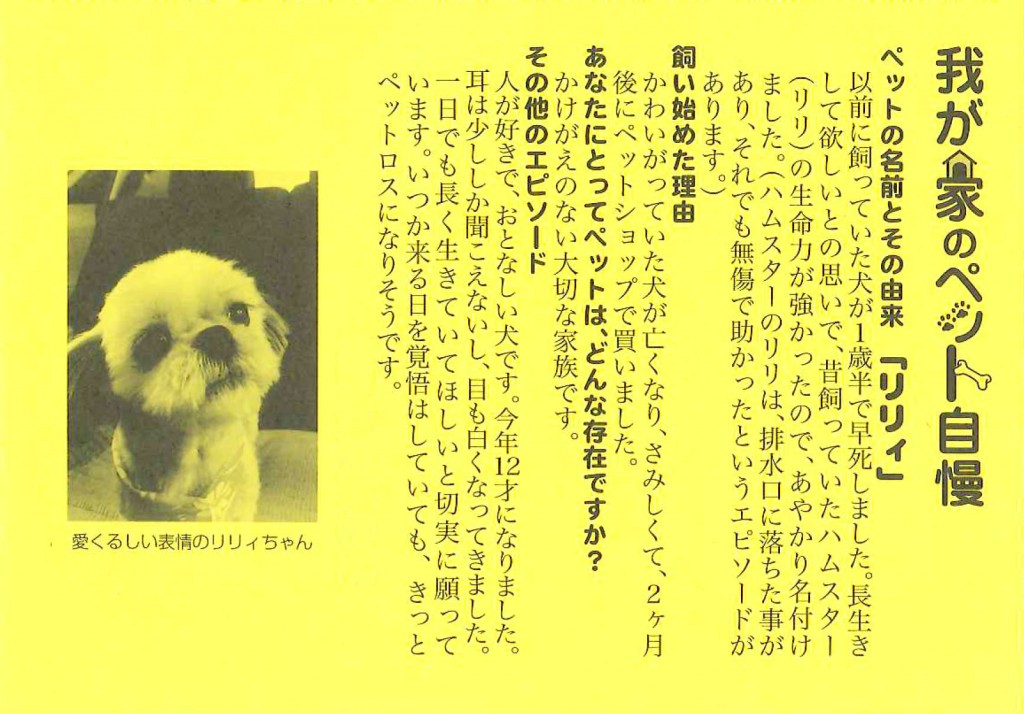 我が家のペット自慢
ペットの名前とその由来 「リリィ」
以前に飼っていた犬が1歳半で早死しました。長生き
して欲しいとの思いで、昔飼っていたハムスター
（リリ）の生命力が強かったので、あやかり名付け
ました。（ハムスターのリリは、排水口に落ちた事が
あり、それでも無傷で助かったというエピソードが
あります。）
飼い始めた理由
かわいがっていた犬が亡くなり、さみしくて、2ヶ月
後にペットショップで買いました。
あなたにとってペットは、どんな存在ですか？
かけがえのない大切な家族です。
その他のエピソード
人が好きで、おとなしい犬です。今年12才になりました。
耳は少ししか聞こえないし、目も白くなってきました。
一日でも長く生きていてほしいと切実に願って
います。いつか来る日を覚悟はしていても、きっと
ペットロスになりそうです。
愛くるしい表情のリリィちゃん